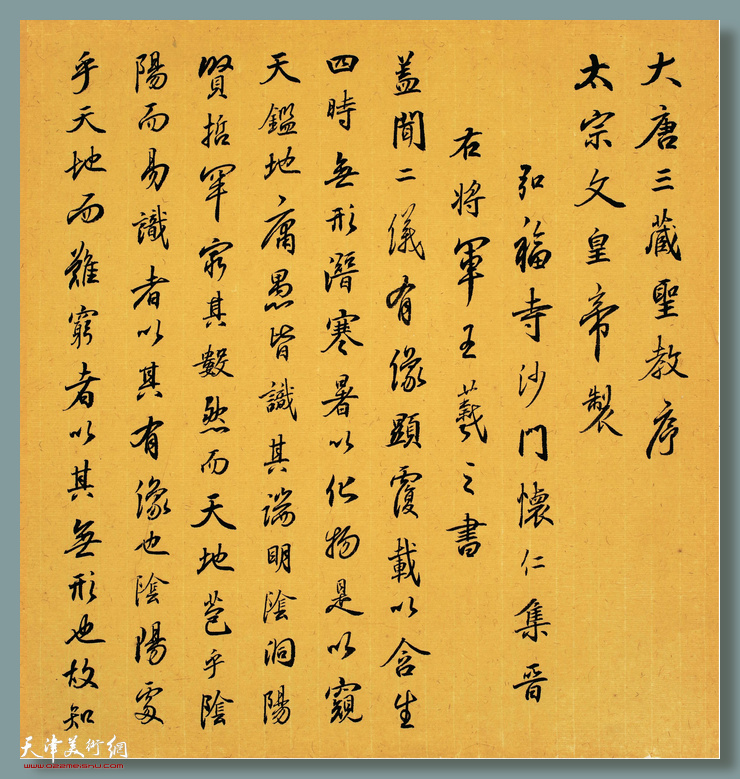 大唐三藏聖教序
太宗文皇帝製
弘福寺沙門懷仁集晉
右將軍王羲之書
蓋聞二儀有像顯覆載以含生
四時無形潛寒暑以化物是以窺
天鑑地庸愚皆識其端明陰洞陽
賢哲罕窮其數然而天地苞乎陰
陽而易識者以其有像也陰陽處
乎天地而難窮者以其無形也故知
天津美術網
www.022meishu.com